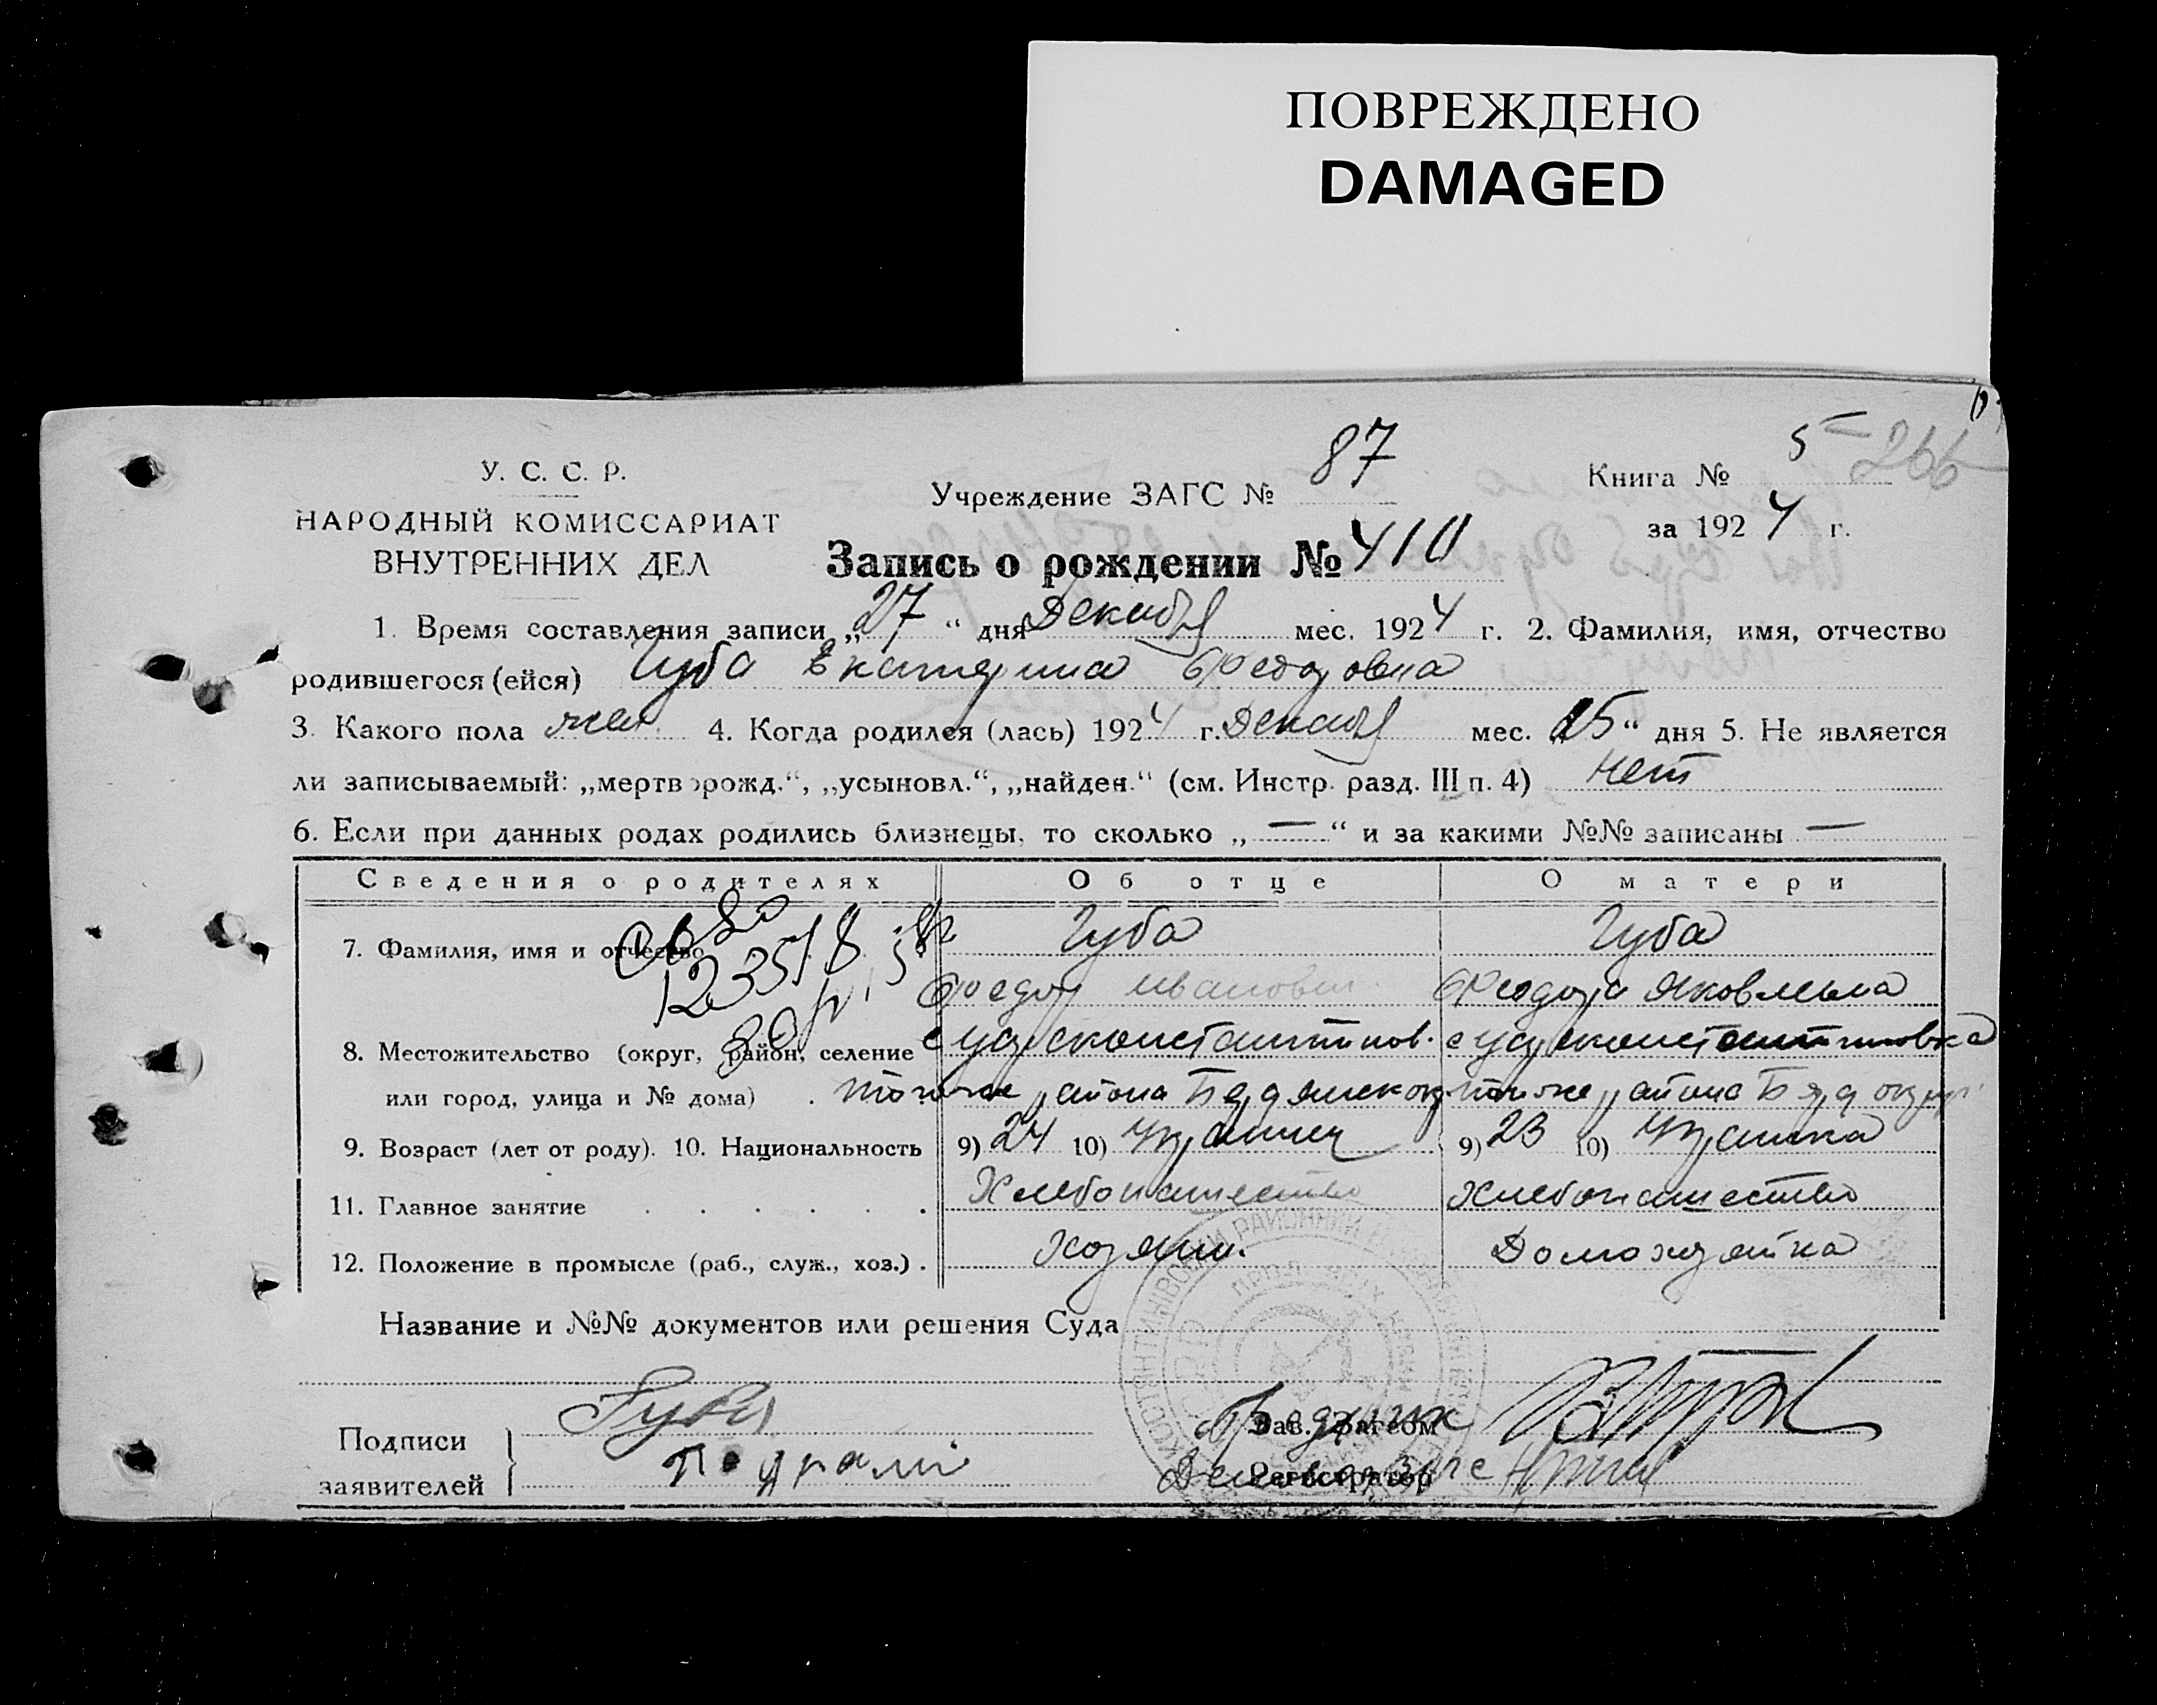 ПОВРЕЖДЕНО
DAMAGED
У. С. С. Р.
НАРОДНЫЙ КОМИССАРИАТ
ВНУТРЕННИХ ДЕЛ
Учреждение ЗАГС № 87
Книга № 5 266
за 1924 г.
Запись о рождении № 410
1. Время составления записи „27“ дня Декабр мес. 1924 г. 2. Фамилия, имя, отчество
родившегося (ейся) Губа Екатерина Федоровна
3. Какого пола жен. 4. Когда родился (лась) 1924 г. Декабр мес. „25“ дня 5. Не является
ли записываемый: „мертворожд.“, „усыновл.“, „найден.“ (см. Инстр. разд. III п. 4) нет
6. Если при данных родах родились близнецы, то сколько „—“ и за какими №№ записаны —
Сведения о родителях Об отце О матери
7. Фамилия, имя и отчество Губа Губа
Федор Иванович Феодора Яковлевна
8. Местожительство (округ, район, селение
или город, улица и № дома) района района
9. Возраст (лет от роду). 10. Национальность 9) 24 10) Украинец 9) 23 10) Украинка
11. Главное занятие Хлебопашество Хлебопашество
12. Положение в промысле (раб., служ., хоз.) Хозяин. Домохозяйка
Название и №№ документов или решения Суда
Подписи
заявителей
Губа
Зав. Загсом
Регистратор